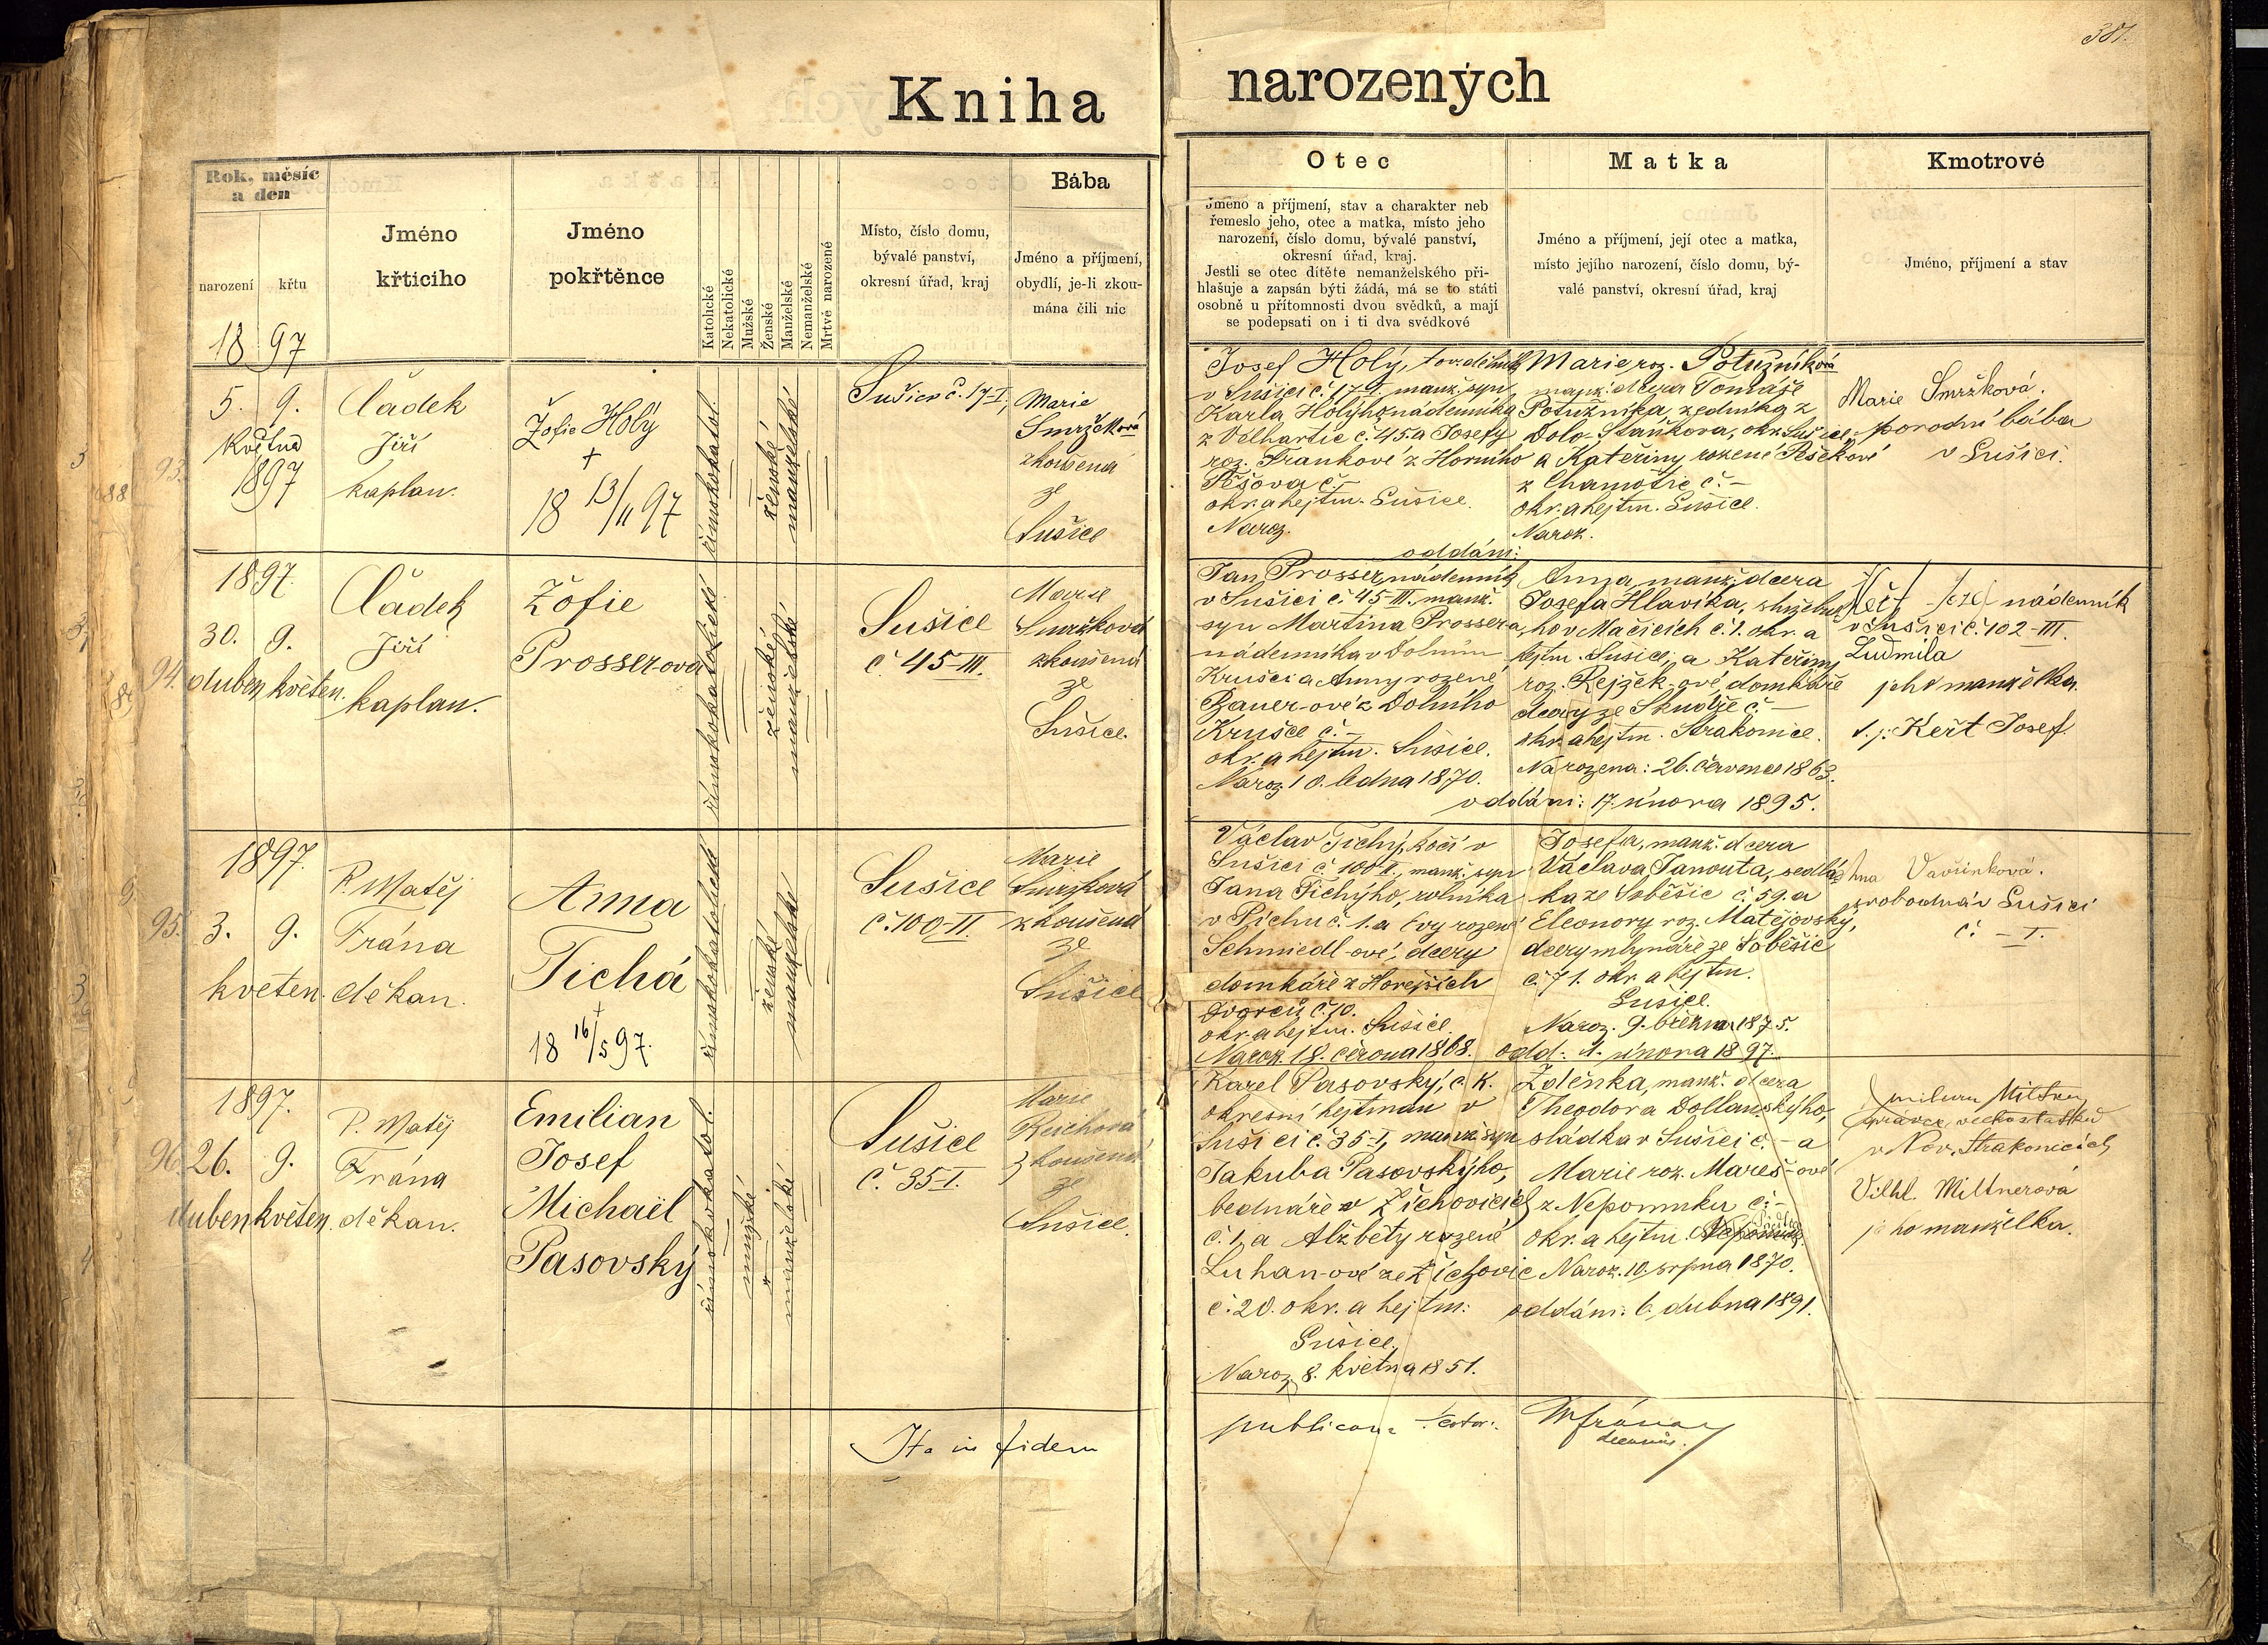 381.
Kniha narozených
Rok, měsíc
a den
narození
křtu
18 97
Jméno
křticiho
Jméno
pokřtěnce
Katolické
Nekatolické
Mužské
Ženské
Manželské
Nemanželské
Mrtvě narozené
Místo, číslo domu,
bývalé panství,
okresní úřad, kraj
Bába
Jméno a příjmení,
obydlí, je-li zkou-
mána čili nic
Otec
Jméno a příjmení, stav a charakter neb
řemeslo jeho, otec a matka, místo jeho
narození, číslo domu, bývalé panství,
okresní úřad, kraj.
Jestli se otec dítěte nemanželského při-
hlašuje a zapsán býti žádá, má se to státi
osobně u přítomnosti dvou svědků, a mají
se podepsati on i ti dva svědkové
Matka
Jméno a příjmení, její otec a matka,
místo jejího narození, číslo domu, bý-
valé panství, okresní úřad, kraj
Kmotrové
Jméno, příjmení a stav
93.
5. 9.
května
1897
Čádek
Jiří
kaplan.
Žofie Holý
†
18 13/11 97
římskokatol.
ženské
manželské
Sušice č. 17-I,
Marie
Smržková
zkoušená
ze
Sušice
Josef Holý, tov. dělník
v Sušici č. 17-I. manž. syn
Karla Holýho nádenníka
z Velhartic č. 45. a Josefy
roz. Frankové z Horního
Těšova č. -
okr. a hejtm. Sušice.
Naroz.
Marie, roz. Potužníková
manž. dcera Tomáše
Potužníka, zedníka z
Dolo-Staňkova, okr. Sušice
a Kateřiny rozené Pešekové
z Chamutic č. -
okr. a hejtm. Sušice.
Naroz.
oddáni:
Marie Smržková.
porodní bába
v Sušici.
94.
1897.
30. 9.
duben květen.
Čádek
Jiří
kaplan.
Žofie
Prosserova
římskokatolické
ženské
manželské
Sušice
č 45-III.
Marie
Smržková
zkoušená
ze
Sušice.
Jan Prosser, nádenník
v Sušici č. 45-III. manž.
syn Martina Prossera,
nádenníka v Dolním
Krušci a Anny rozené
Bauer-ové z Dolního
Krušce č. -
okr. a hejtm. Sušice.
Naroz. 10. ledna 1870.
Anna, manž. dcera
Josefa Hlavika, služebné-
ho v Mačicích č. 1. okr. a
hejtm. Sušice, a Kateřiny
roz. Rejžek-ové, domkáře
dcery ze Skudže č. -
okr. a hejtm. Strakonice.
Narozena: 26. července 1863.
oddáni: 17. února 1895.
nádenník
v Sušici č. 102-III.
Ludmila
jeho manželka.
t. j: Keřt Josef.
95.
1897.
3. 9.
květen.
P. Matěj
Frána
děkan.
Anna
Tichá
†
18 16/5 97.
římskokatolické
ženské
manželské
Sušice
č. 100-II.
Marie
Smržková
zkoušená
ze
Sušice
Václav Tichý, kočí v
Sušici č. 100-II., manž. syn
Jana Tichýho, rolníka
v Píchu č. 1. a Evy rozené
Schmiedl-ové, dcery
domkáře z Horejších
Dvorců č. 10.
okr. a hejtm. Sušice.
Naroz. 18. června 1868.
Josefa, manž. dcera
Václava Janouta, sedlá-
ka ze Soběšic č. 59. a
Eleonory roz. Matějovský,
dcery mlynáře ze Soběšic
č. 71. okr. a hejtm.
Sušice.
Naroz. 9. března 1875.
odd: 1. února 1897.
Vavřinková.
svobodná v Sušici
č. - I.
96.
1897.
26. 9.
duben květen.
P. Matěj
Frána
děkan.
Emilian
Josef
Michaël
Pasovský
římskokatol.
mužské
manželské
Sušice
č. 35-I.
Marie
Reichová
zkoušená
ze
Sušice.
Karel Pasovský, c. k.
okresní hejtman v
Sušici č. 35-I, manž. syn
Jakuba Pasovskýho,
bednáře v Žichovicích
č. 1, a Alžběty rozené
Luhan-ové ze Žichovic
č. 20. okr. a hejtm:
Sušice.
Naroz. 8. května 1851.
Zdeňka, manž. dcera
Theodora Dollanskýho,
sládka v Sušici č. - a
Marie roz. Mareš-ové
z Nepomuku č. -
okr. a hejtm.
Naroz. 10. srpna 1870.
oddáni: 6. dubna 1891.
správce velkostatku
v Nov. Strakonicích
Vilhl. Miltnerová
jeho manželka.
Ita in fidem
publicam testor:
M Frána
decanus.